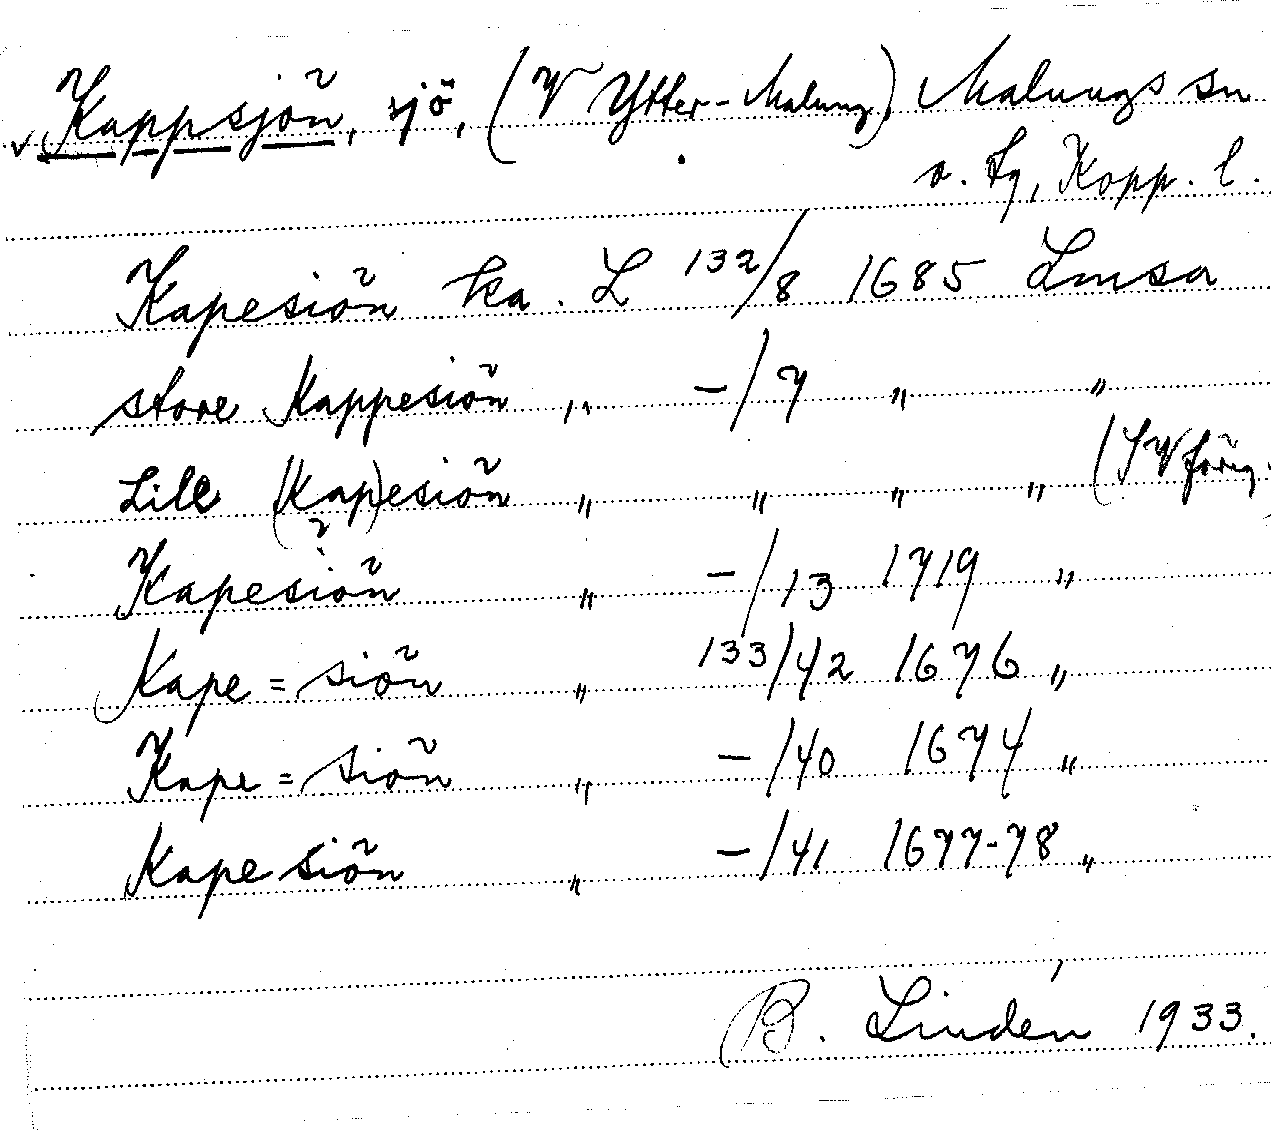 Kappsjön, sjö, (V Ytter-Malung) Malungs sn
o. tg, Kopp. l.
Kapesiön ka. L 132/8 1685 Lmsa
store Kappesiön „ -/7 „ „
Lill (Kap)esiön „ „ „ „ (SV föreg.
Kapesiön „ -/13 1719 „
Kape=siön „ 133/42 1676 „
Kape=siön „ -/40 1674 „
Kapesiön „ -/41 1677-78 „
B. Lindén 1933.